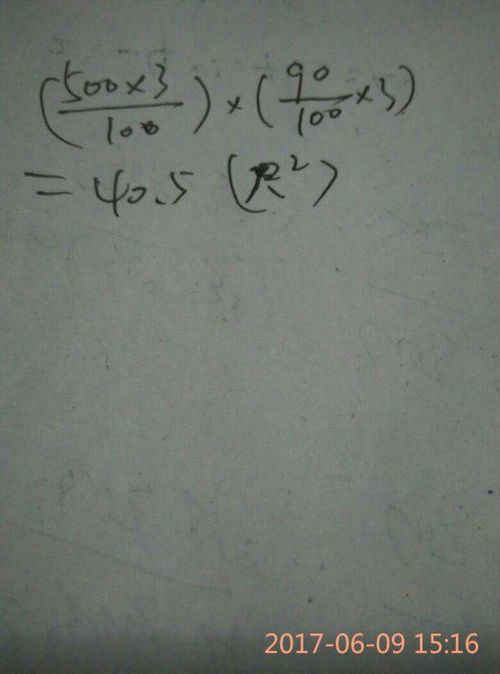 (500×3/100)×(90/100×3)
=40.5(尺²)
2017-06-09 15:16